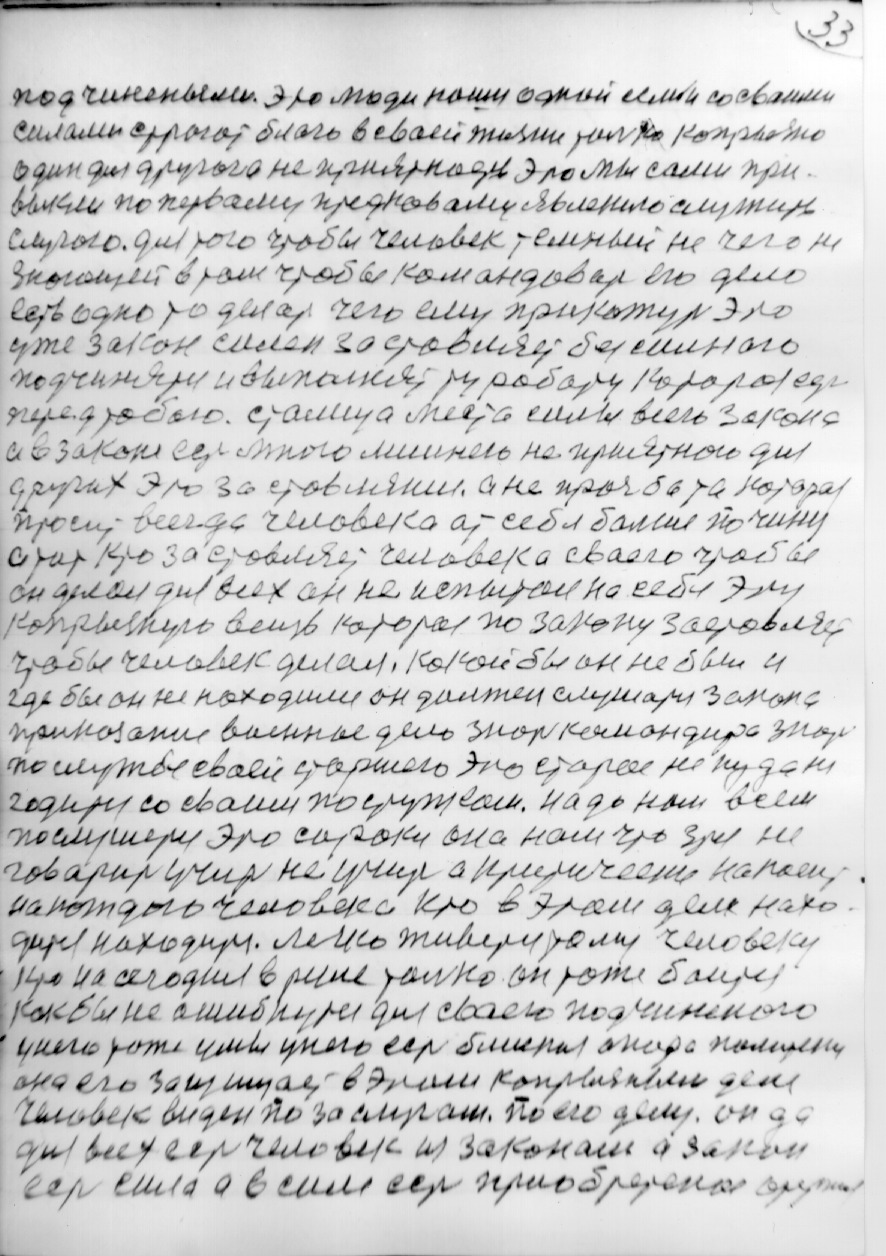 33
подчиненьями. Это люди наши одной семьи со сваими
силами строют благо в сваей жизни только
один для другога не приятность Это мы сами при-
выкли по первому явлению служить
слугою. для того чтобы человек темный не чего не
знающей в том чтобы командоват его дело
есть одно то делат чего ему прикажут Это
уже закон силен заставляет бессилного
подчинятся и выполнят ту работу каторая ест
перед тобою. места силы всего закона
а в законе ест много лишнего не приятного для
других Это заставляния. а не прозба та каторая
просит всегда человека от себя болше по чину
а тот кто заставляет человека сваего чтобы
он делал для всех он не испытал на себе Эту
вещь каторая по закону заставляет
чтобы человек делал. какой бы он не был и
где бы он не находился он должен слушатся закона
приказание военное дело знат командира знат
по службе сваей старшего Это старое не куда не
годится со сваим поступком. надо нам всем
послушатся Это сароки она нам что зря не
говорит учит не учит а критически напоент
на каждого человека кто в Этом деле нахо-
дится находится. легко живется тому человеку
кто на сегодня в толко он тоже боится
как бы не ашибнутся для сваего подчиненого
у него тоже умы у него ест ближняя апора полиция
она его защищает в Этом деле
человек виден по заслугам. по его делу. он да
для всех ест человек из законам а закон
ест сила а в силе ест приобретеное оружия